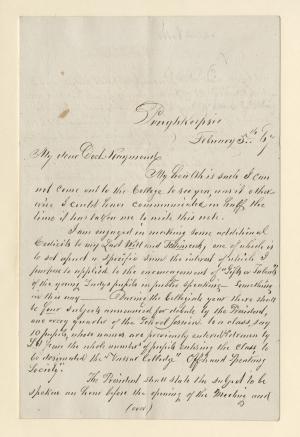 Poughkeepsie
February 5th 67
My dear Doct. Raymond,
My health is such I can
not come out to the College to see you, was it other
wise I could have communicated in half the
time it has taken me to write this note.
I am engaged in making some additional
Codicils to my Last Will and Testament, one of which is
to set apart a specific sum the interest of which I
purpose to applied to the encouragement of
of the young Ladys pupils in public speaking. Something
in this way — During the Collegiate year there shall
be four subjects announced for debate by the President,
one every quarter of the School Session to a class, say
10 pupils, whose names are previously entered
from the whole number of pupils entering the Class to
be designated the "Vassar College" and Speaking
Society.
The President shall state the subject to be
spoken an hour before the opening of the Meeting and
(over)